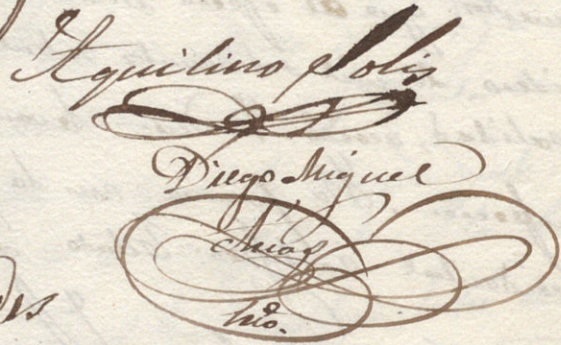 Aquilino Solis
Diego Miguel
Arias
Srio.